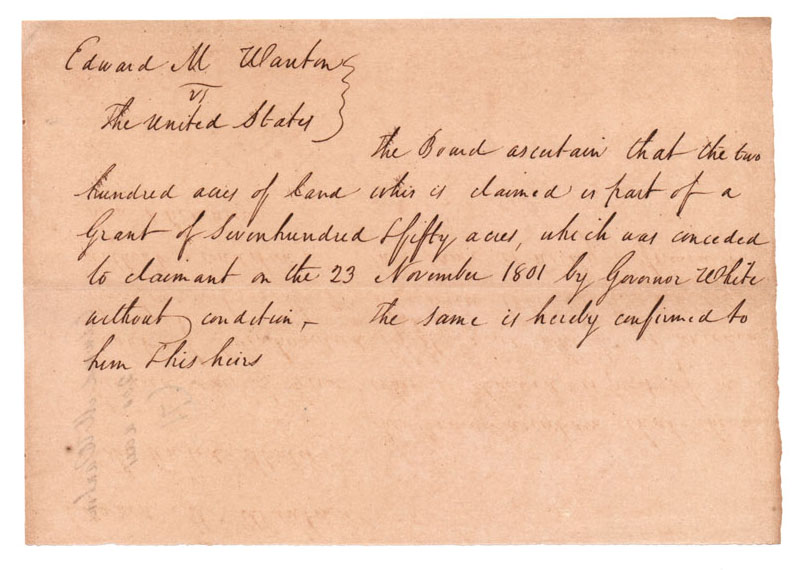 Edward M Wanton
vs
The United States
The Board ascertain that the two
hundred acres of land whis is claimed is part of a
Grant of Sevenhundred & fifty acres, which was conceded
to claimant on the 23 November 1801 by Governor White
without condition - The same is hereby confirmed to
him & his heirs